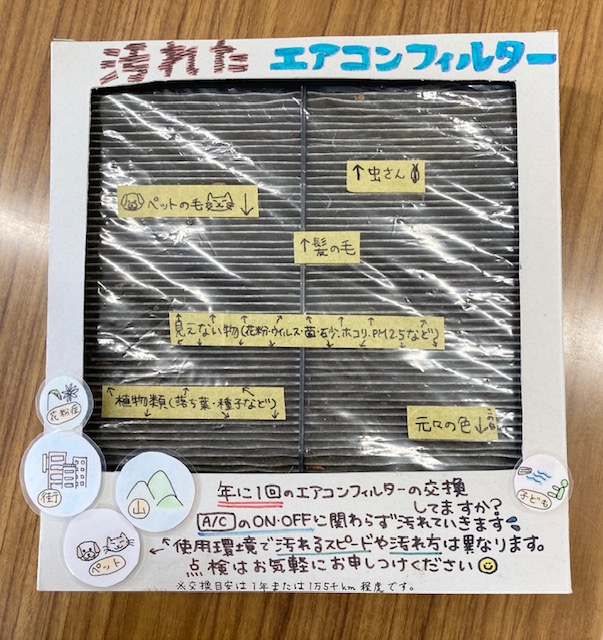 汚れた エアコンフィルター
↑虫さん
ペットの毛 ↓
↑髪の毛
見えない物(花粉・ウイルス・菌・砂・ホコリ・PM2.5など)
植物類(落ち葉・種子など)
元々の色↓
花粉症
街
山
子ども
ペット
年に1回のエアコンフィルターの交換
してますか?
A/CのON・OFFに関わらず汚れていきます
使用環境で汚れるスピードや汚れ方は異なります。
点検はお気軽にお申しつけください
※交換目安は1年または1万5千km程度です。